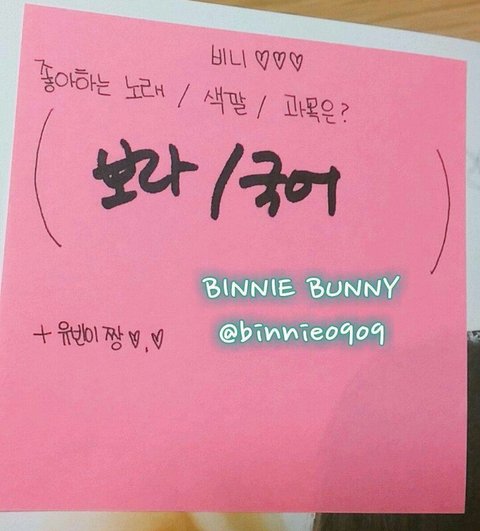 비니 ♡♡♡
좋아하는 노래 / 색깔 / 과목은?
( 보라 / 국어 )
BINNIE BUNNY
@binnie0909
+ 유빈이 짱 ♡.♡